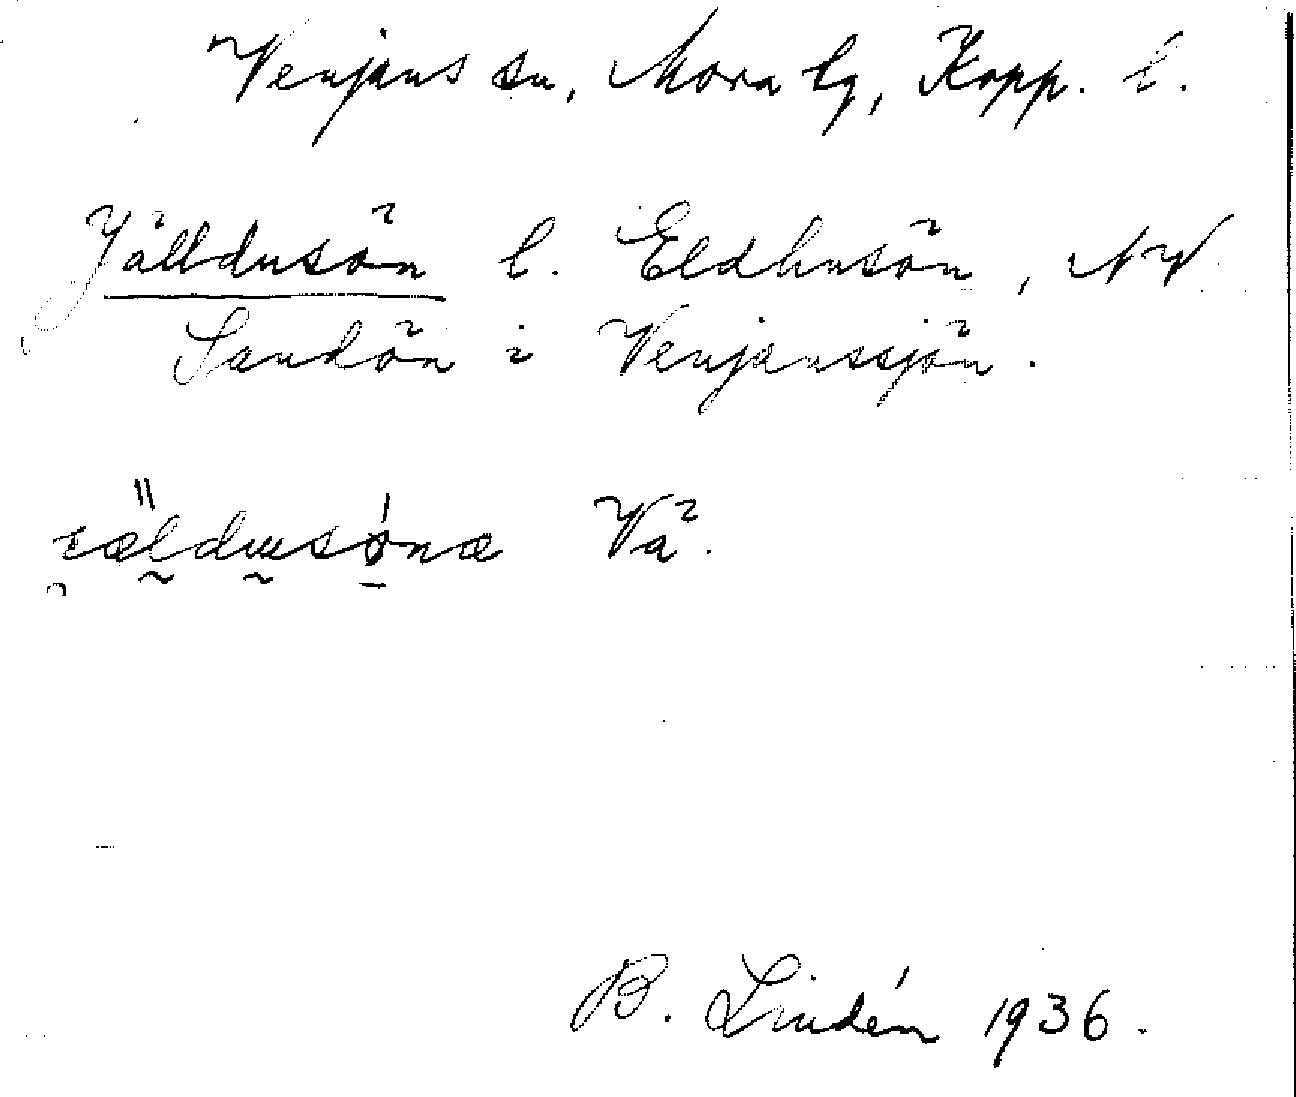 Venjans sn, Mora tg, Kopp. l.
Jälldusön l. Eldhusön, NV
Sandön i Venjanssjön.
Vä.
B. Lindén 1936.